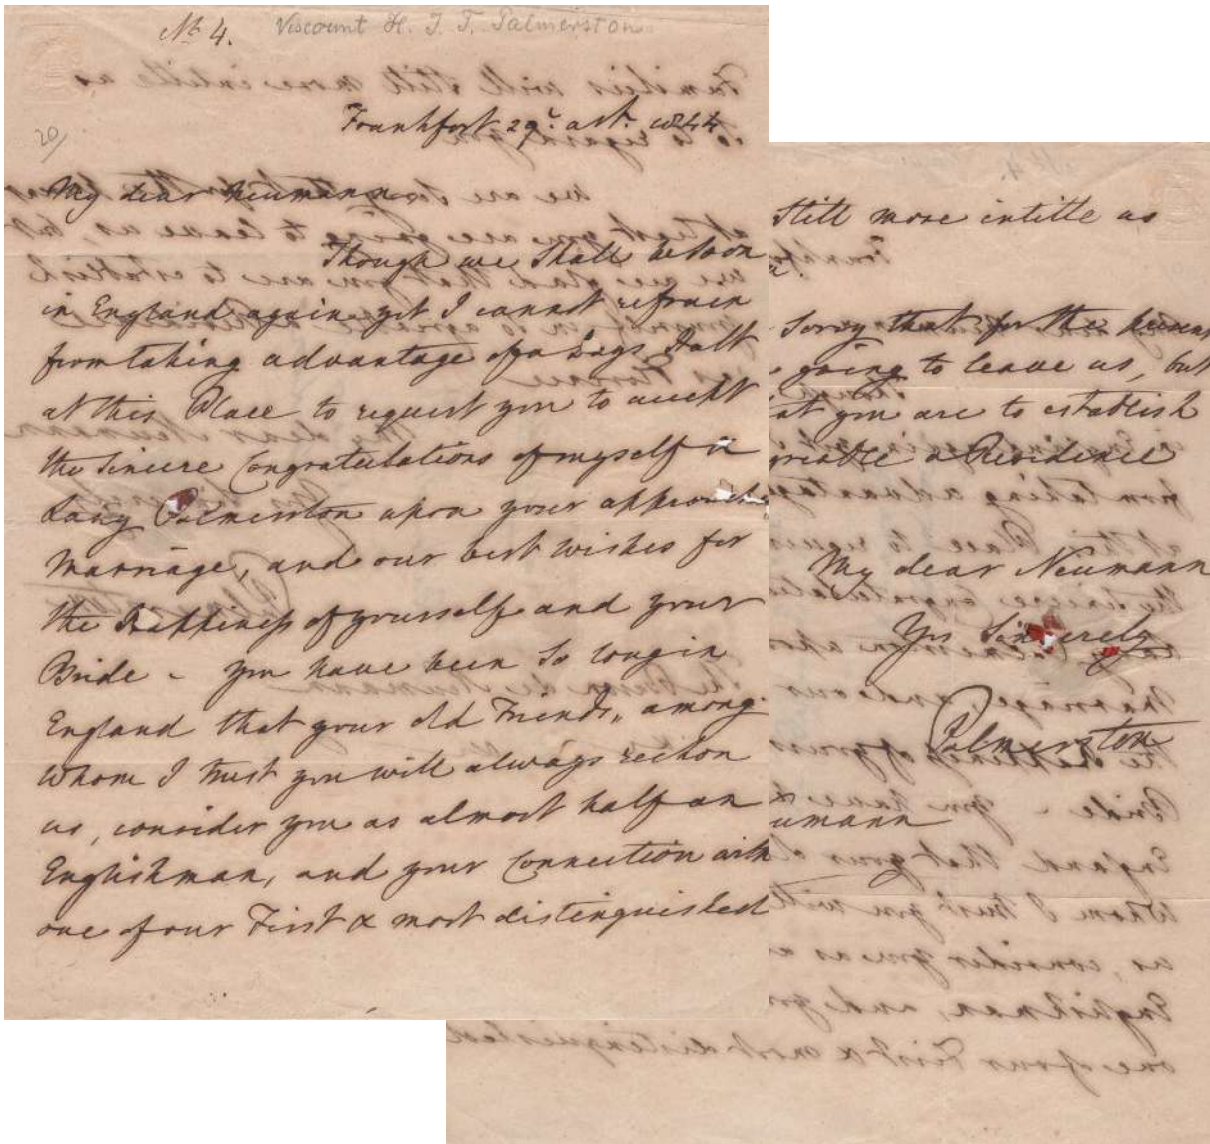 No. 4. Viscount H. J. T. Palmerston
20/
Frankfort 29. Oct. 1844
My dear Neumann
Though we shall be soon
in England again yet I cannot refrain
from taking advantage of a Days Halt
at this Place to request you to accept
the sincere Congratulations of myself &
Lady Palmerston upon your approaching
Marriage, and our best wishes for
the Happiness of yourself and your
Bride – you have been so long in
England that your old Friends, among
whom I trust you will always reckon
us, consider you as almost half an
Englishman, and your Connection with
one of our First & most distinguished
still more intitle us
sorry that for the
going to leave us, but
at you are to establish
greeable a Residence
My dear Neumann
Yrs Sincerely
Palmerston
umann